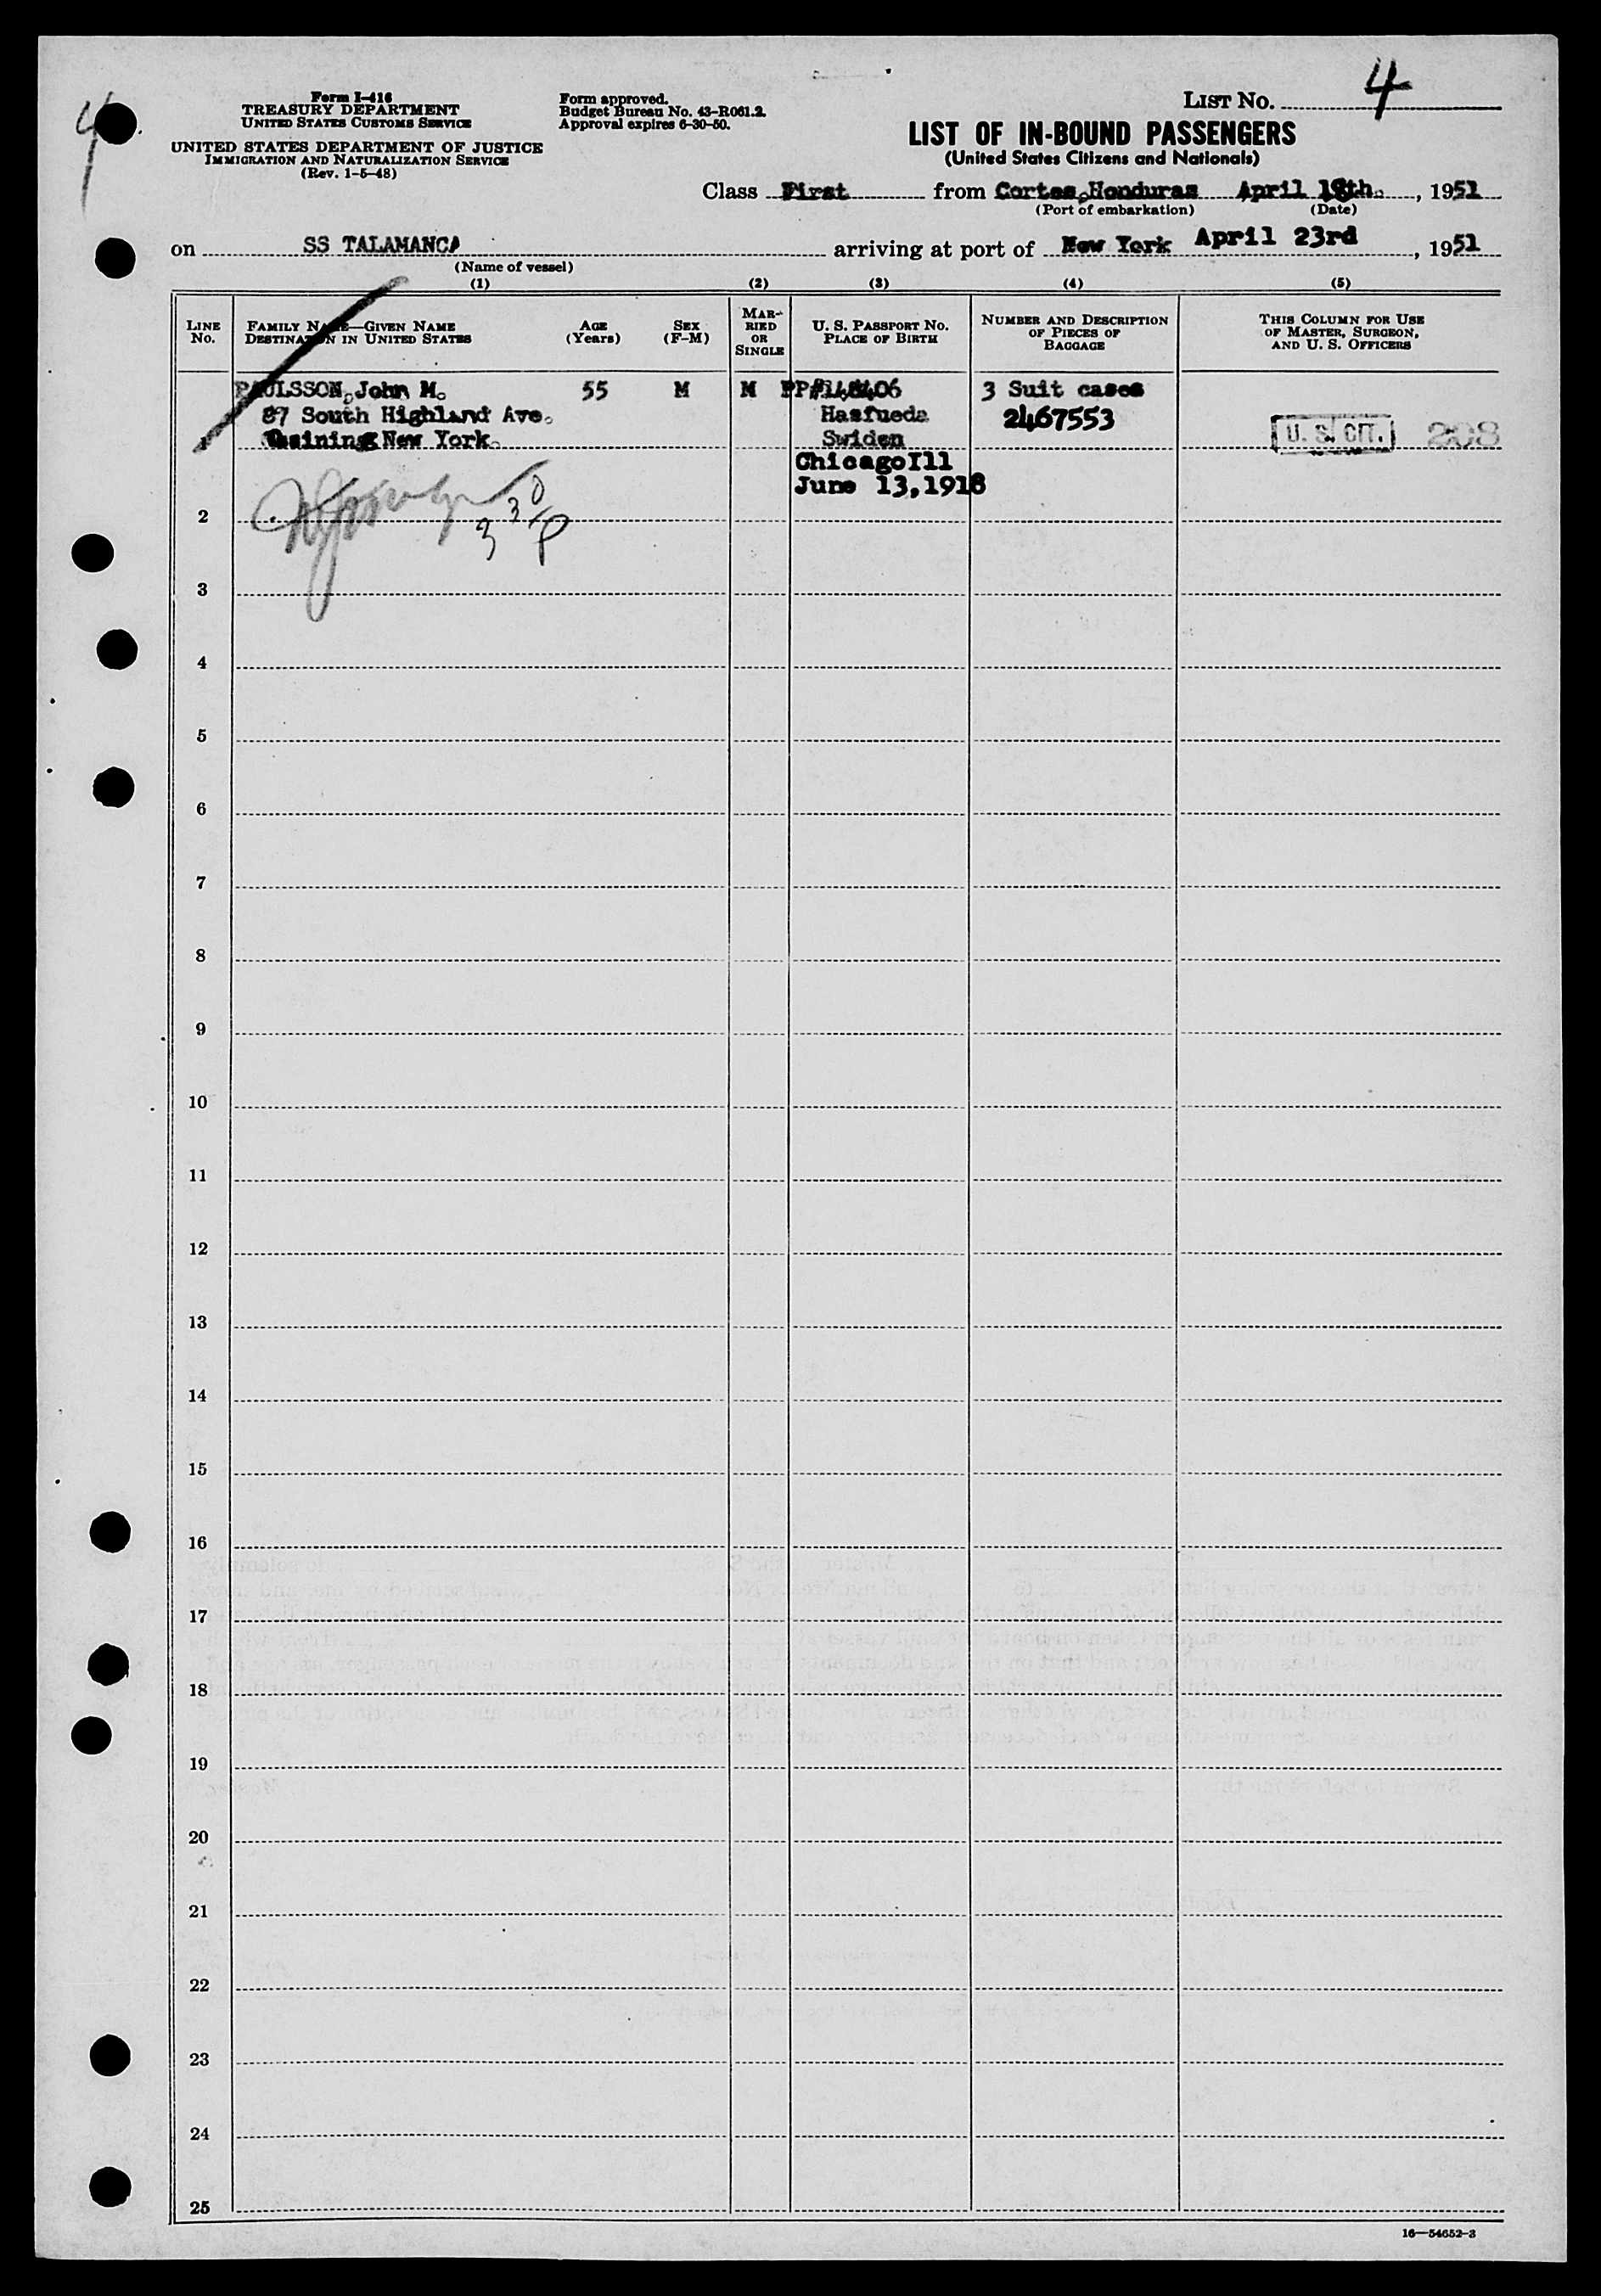 4
Form I-416
TREASURY DEPARTMENT
UNITED STATES CUSTOMS SERVICE
UNITED STATES DEPARTMENT OF JUSTICE
IMMIGRATION AND NATURALIZATION SERVICE
(Rev. 1-5-48)
Form approved.
Budget Bureau No. 43-R061.2.
Approval expires 6-30-50.
LIST NO. 4
LIST OF IN-BOUND PASSENGERS
(United States Citizens and Nationals)
Class First from Cortes, Honduras April 18th. , 1951
(Port of embarkation) (Date)
on SS TALAMANCA arriving at port of New York April 23rd , 1951
(Name of vessel)
(1) (2) (3) (4) (5)
LINE NO.
FAMILY NAME—GIVEN NAME
DESTINATION IN UNITED STATES
AGE (Years)
SEX (F-M)
MARRIED OR SINGLE
U. S. PASSPORT NO.
PLACE OF BIRTH
NUMBER AND DESCRIPTION
OF PIECES OF
BAGGAGE
THIS COLUMN FOR USE
OF MASTER, SURGEON,
AND U. S. OFFICERS
PAULSSON, John M. 55 M M PP# 3 Suit cases
87 South Highland Ave. Hasfueda 2467553
1 New York. Swiden U. S. CIT. 208
Chicago Ill
June 13, 1918
330 P
2
3
4
5
6
7
8
9
10
11
12
13
14
15
16
17
18
19
20
21
22
23
24
25
16—54652-3